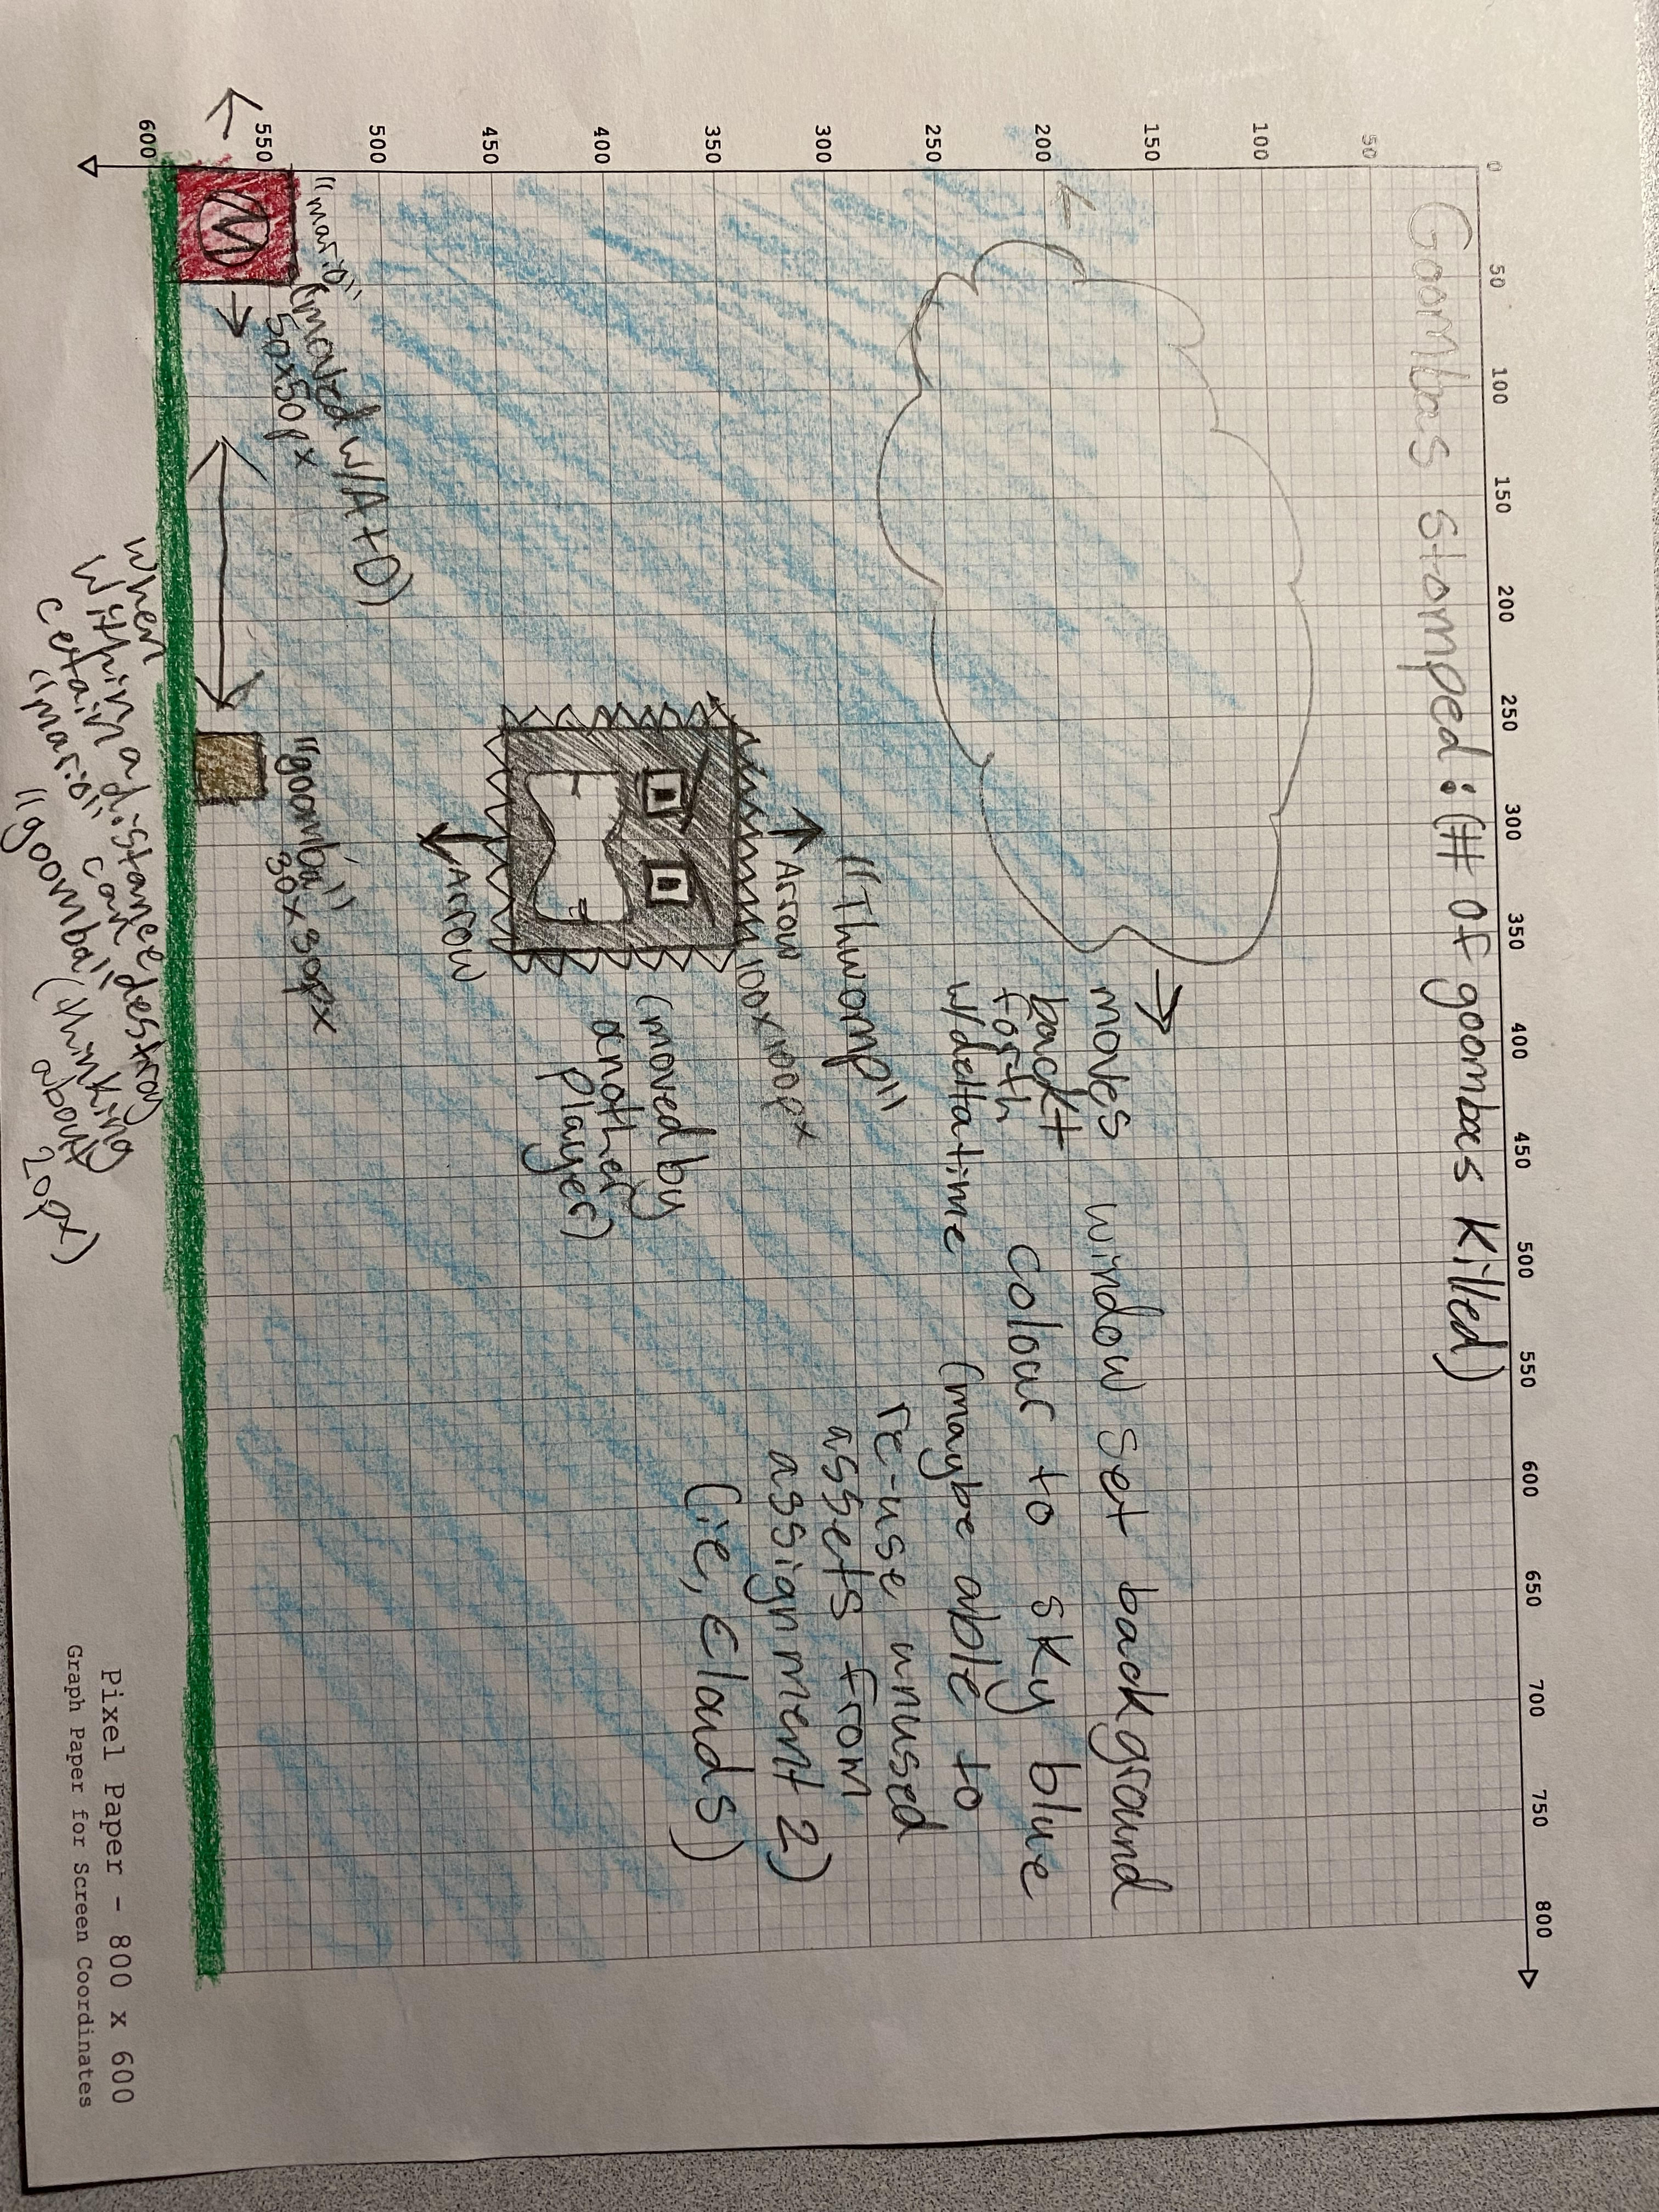 0 50 100 150 200 250 300 350 400 450 500 550 600 650 700 750 800
Goombas stomped: (# of goombas killed)
50
100
150
200
250
300
350
400
450
500
550
600
moves
back +
forth
w/deltatime
window set background
colour to sky blue
(maybe able to
re-use unused
assets from
assignment 2)
(ie, clouds)
"Thwomp"
Arrow
100x100px
(moved by
another
player)
Arrow
"mario"
(moved w/A+D)
50x50px
M
"goomba"
30x30px
when
within a distance
certain
"mario" can destroy
"goomba" (thinking
about
20px)
Pixel Paper - 800 x 600
Graph Paper for Screen Coordinates